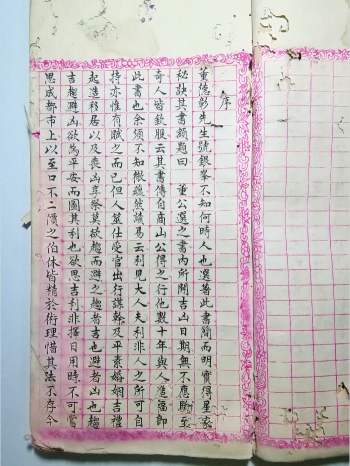 序
董德彰先生號銀峯不知何時人也選著此書簡而明實得星家
秘訣其書額題曰 董公選之書內所開吉凶日期無不應驗至
奇人皆欽服云其書傳自商山公傳之行他數十年與人造福卸
此書也余須不知傲蹤然讀易云利見大人夫利非人之所可自
持亦惟有賦之而已但人筮仕受官出行謀幹及平素婚姻吉禮
起造移居以及喪凶享祭莫欲趨而避之趨者吉也避者凶也趨
吉趨避凶欲爲平安而圖其利也欲思吉利非擇日用時不可嘗
思成都市上以至口不二價之伯休皆精於術理惜其法不存今